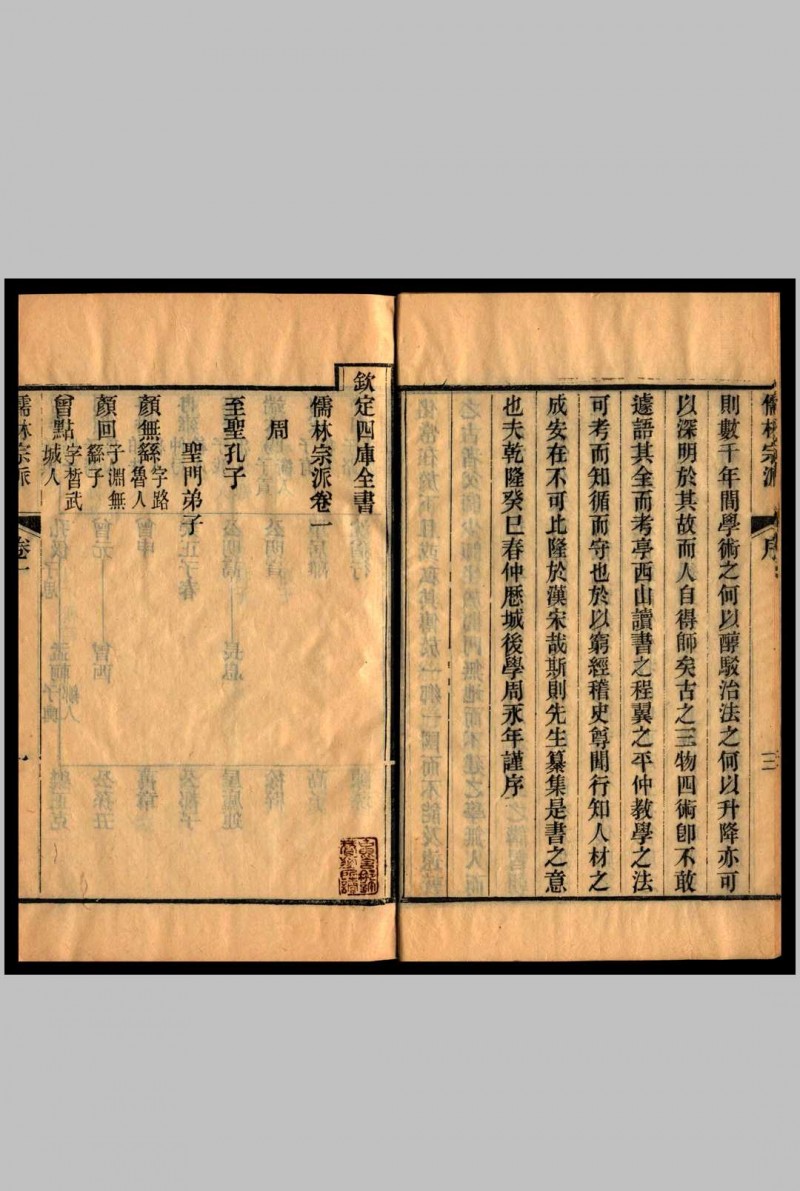 儒林宗派
序
三
則數千年間學術之何以醇駁治法之何以升降亦可
以深明於其故而人自得師矣古之三物四術卽不敢
遽語其全而考亭西山讀書之程翼之平仲教學之法
可考而知循而守也於以窮經稽史尊聞行知人材之
成安在不可比隆於漢宋哉斯則先生纂集是書之意
也夫乾隆癸巳春仲歷城後學周永年謹序
欽定四庫全書
儒林宗派卷一
周
至聖孔子
聖門弟子
顏無繇字路魯人
顏回子淵無繇子
曾點字晳武城人
儒林宗派
卷一
一